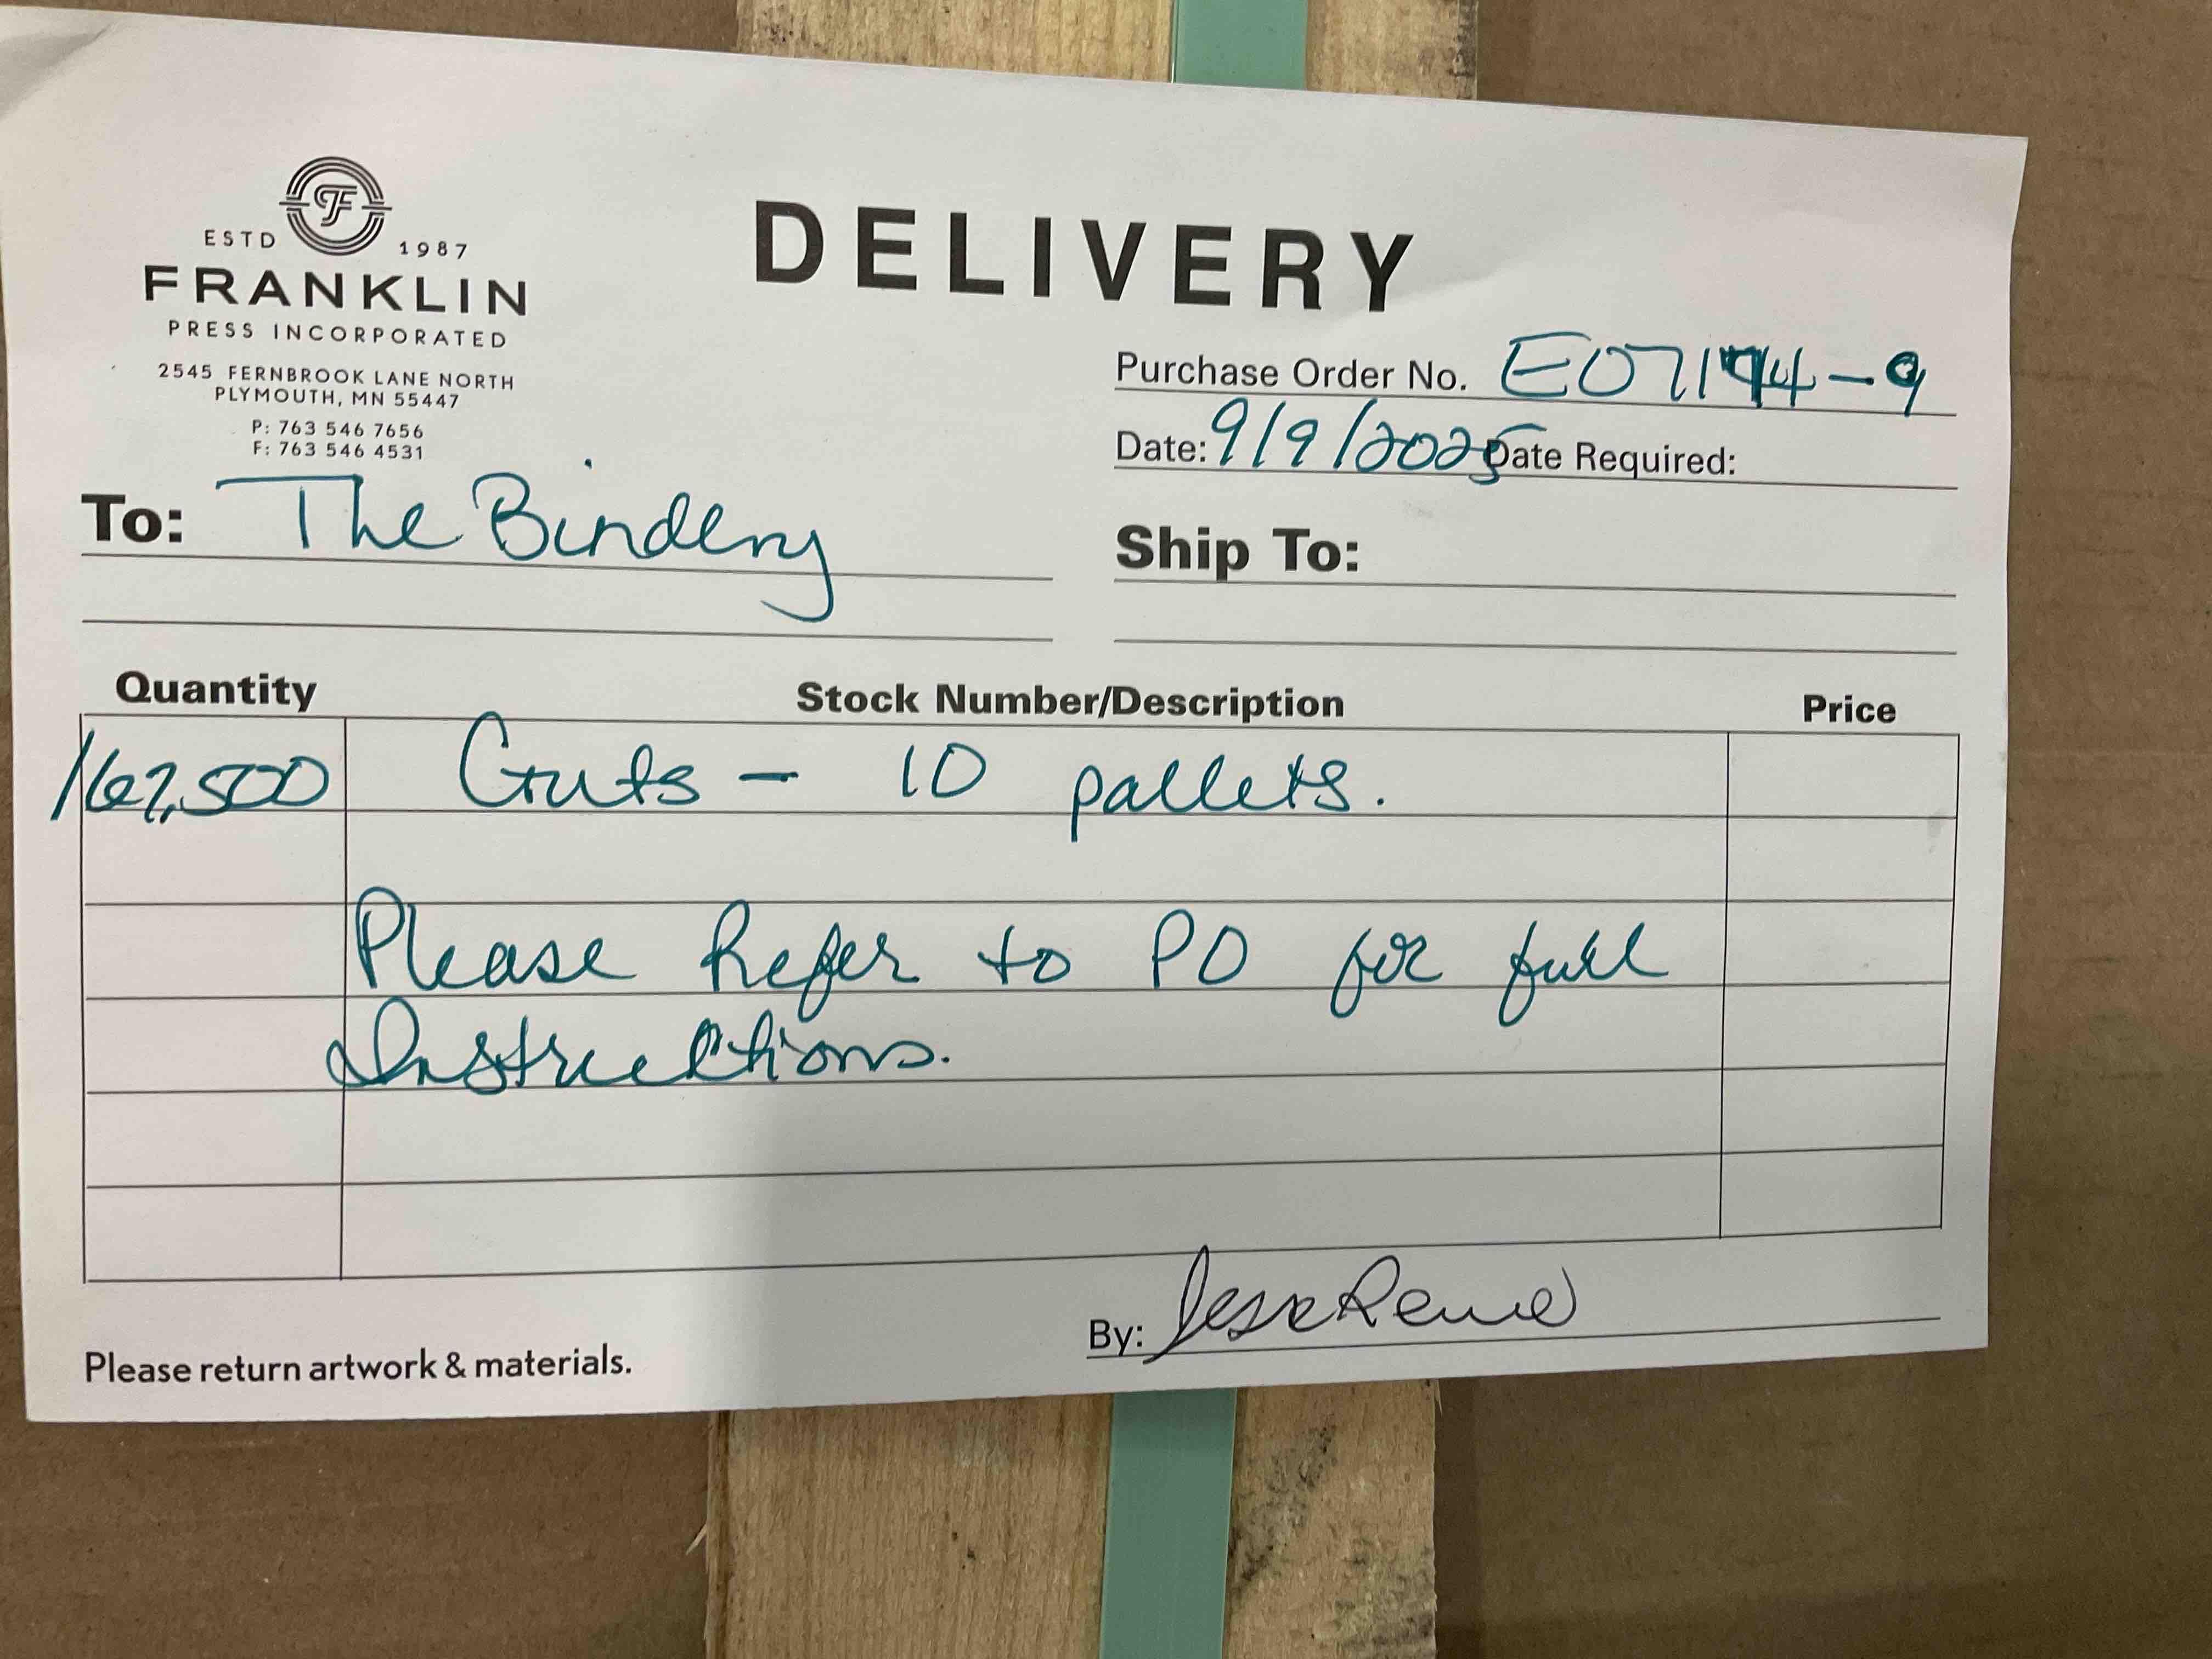 DELIVERY
ESTD 1987
FRANKLIN
PRESS INCORPORATED
2545 FERNBROOK LANE NORTH
PLYMOUTH, MN 55447
P: 763 546 7656
F: 763 546 4531
Purchase Order No.
Date: 9/9/2025 Date Required:
To: The Bindery
Ship To:
Quantity Stock Number/Description Price
Guts - 10 pallets.
Please Refer to PO for full
Instructions.
Please return artwork & materials.
By: